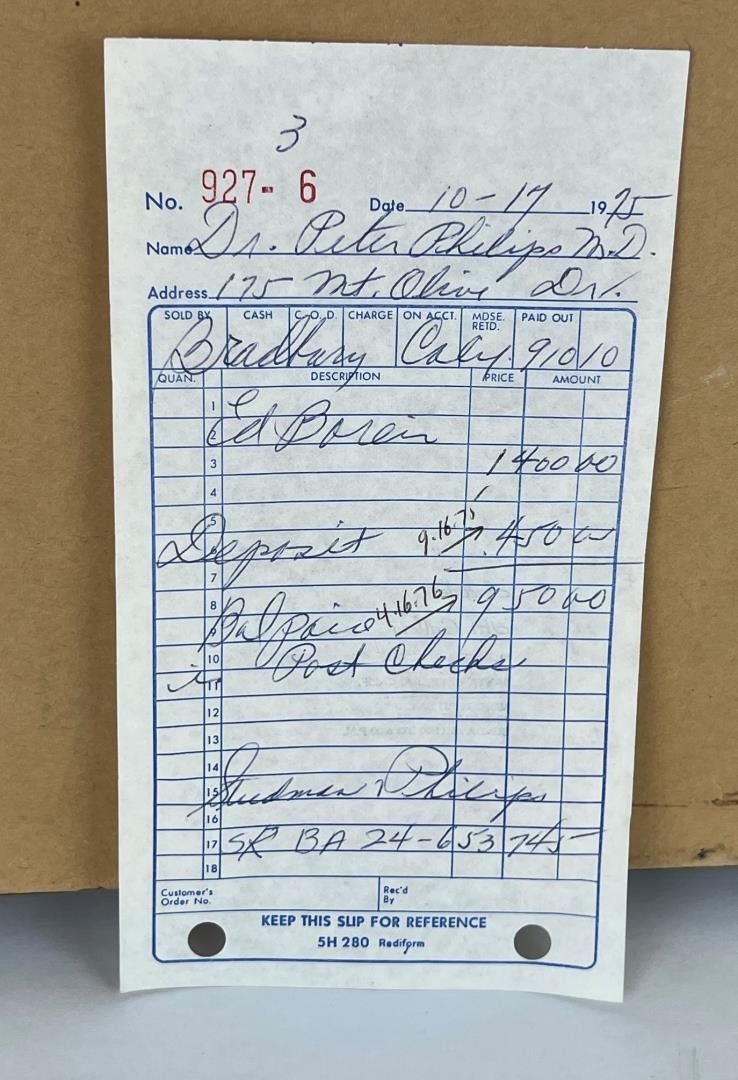 3
No. 927- 6 Date 10-17 1975
Name Dr. Peter Philips M.D.
Address 175 Mt. Olive Dr.
SOLD BY CASH C.O.D. CHARGE ON ACCT. MDSE. RETD. PAID OUT
Bradbury Calif. 91010
QUAN. DESCRIPTION PRICE AMOUNT
1
2 Ed Borein
3 1400 00
4
5
6 Deposit 9.16.75 450 00
7
8 4.16.76 950 00
9 Bal
10 Post Checks
11
12
13
14
15 Philips
16
17 BA 24-653745
18
Customer's Order No. Rec'd By
KEEP THIS SLIP FOR REFERENCE
5H 280 Rediform